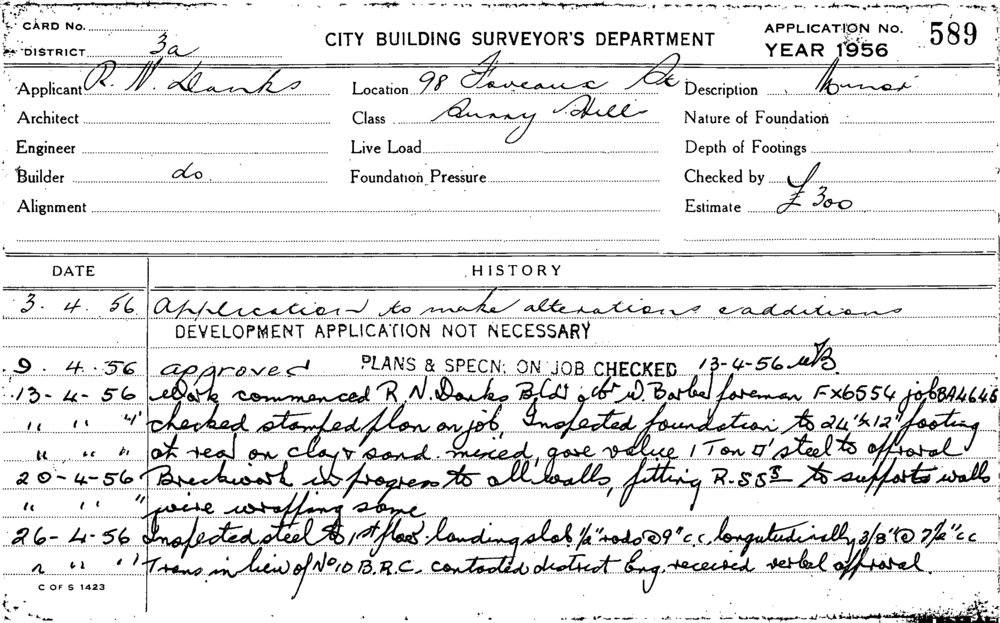 CARD No.
DISTRICT 3a
CITY BUILDING SURVEYOR'S DEPARTMENT
APPLICATION No. 589
YEAR 1956
Applicant R. N. Danks
Location 98 Foveaux St
Description Minor
Architect
Class Surry Hills
Nature of Foundation
Engineer
Live Load
Depth of Footings
Builder do
Foundation Pressure
Checked by
Alignment
Estimate £300
DATE
HISTORY
3. 4. 56. Application to make alterations & additions
DEVELOPMENT APPLICATION NOT NECESSARY
9. 4. 56 approved PLANS & SPECN: ON JOB CHECKED 13-4-56
13-4-56 Work commenced R. N. Danks Bldr W. Barber foreman FX6554 job BA4646
" " " checked stamped plan on job, Inspected foundation to 24"x12" footing
" " " at rear on clay & sand mixed, gave value 1 Ton □' steel to approval
20-4-56 Brickwork in progress to all walls, fitting R.S.Js to supports walls
" " " wire wrapping same
26-4-56 Inspected steel to 1st floor landing slab. 1/2" rods @ 9" c.c. longitudinally 3/8" @ 7 1/2" cc
" " " Trans. in lieu of No 10 B.R.C. contacted district Eng. received verbal approval.
C OF S 1423